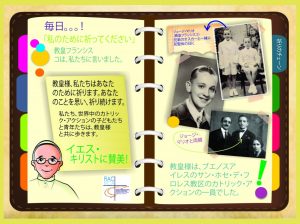 毎日。。。！
「私のために祈ってください」
教皇フランシス
コは、私たちに言いました。
教皇様、私たちはあなた
のために祈ります。あなた
のことを思い、祈り続けます。
私たち、世界中のカトリッ
ク・アクションの子どもたち
と青年たちは、教皇様
と共に歩きます。
イエス・
キリストに賛美！
ジョージ・
マリオと両親
教皇様は、ブエノスア
イレスのサン・ホセ・デ・フ
ロレス教区のカトリック・ア
クションの一員でした。